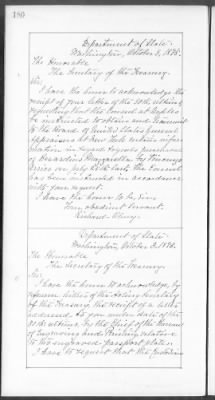 180
Department of State
Washington, October 3, 1888.
The Honorable
The Secretary of the Treasury.
Sir:
I have the honor to acknowledge the
receipt of your letter of the 30th ultimo,
requesting that the Consul at
be instructed to obtain and transmit
to the Board of United States General
Appraisers at New York certain infor-
mation in regard
of
on July 26th last. The Consul
has been instructed in accordance
with your request.
I have the honor to be, Sir,
Your obedient servant,
Richard Olney.
Department of State
Washington, October 3,
The Honorable
The Secretary of the Treasury.
Sir:
I have the honor to acknowledge, by
letter of the Acting Secretary
of the Treasury, the receipt of a letter
addressed to you under date of the
30th ultimo, by the Chief of the Bureau
of Engraving and Printing relative
to the engraved passport plates.
I have to request that the